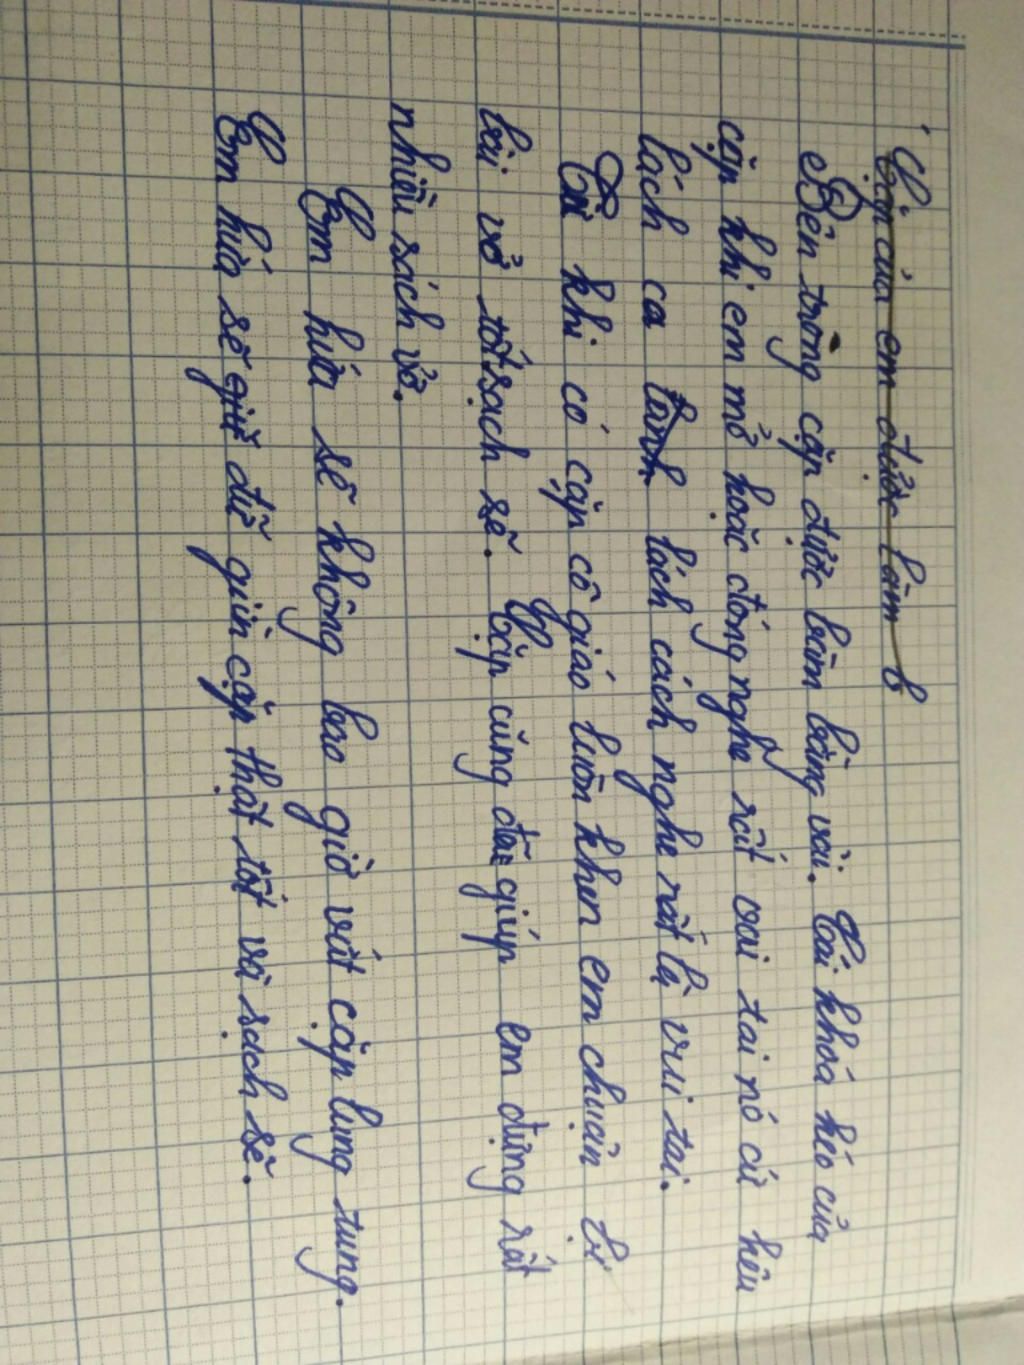 Cặp của em được làm b
Bên trong cặp được làm bằng vải. Cái khoá kéo của
cặp khi em mở hoặc đóng nghe rất vui tai nó cứ kêu
lách ca lách cách nghe rất là vui tai.
Từ khi có cặp cô giáo luôn khen em chuẩn bị
bài vở tốt sạch sẽ. Cặp cũng đã giúp em đựng rất
nhiều sách vở.
Em hứa sẽ không bao giờ vứt cặp lung tung.
Em hứa sẽ giữ gìn cặp thật tốt và sạch sẽ.